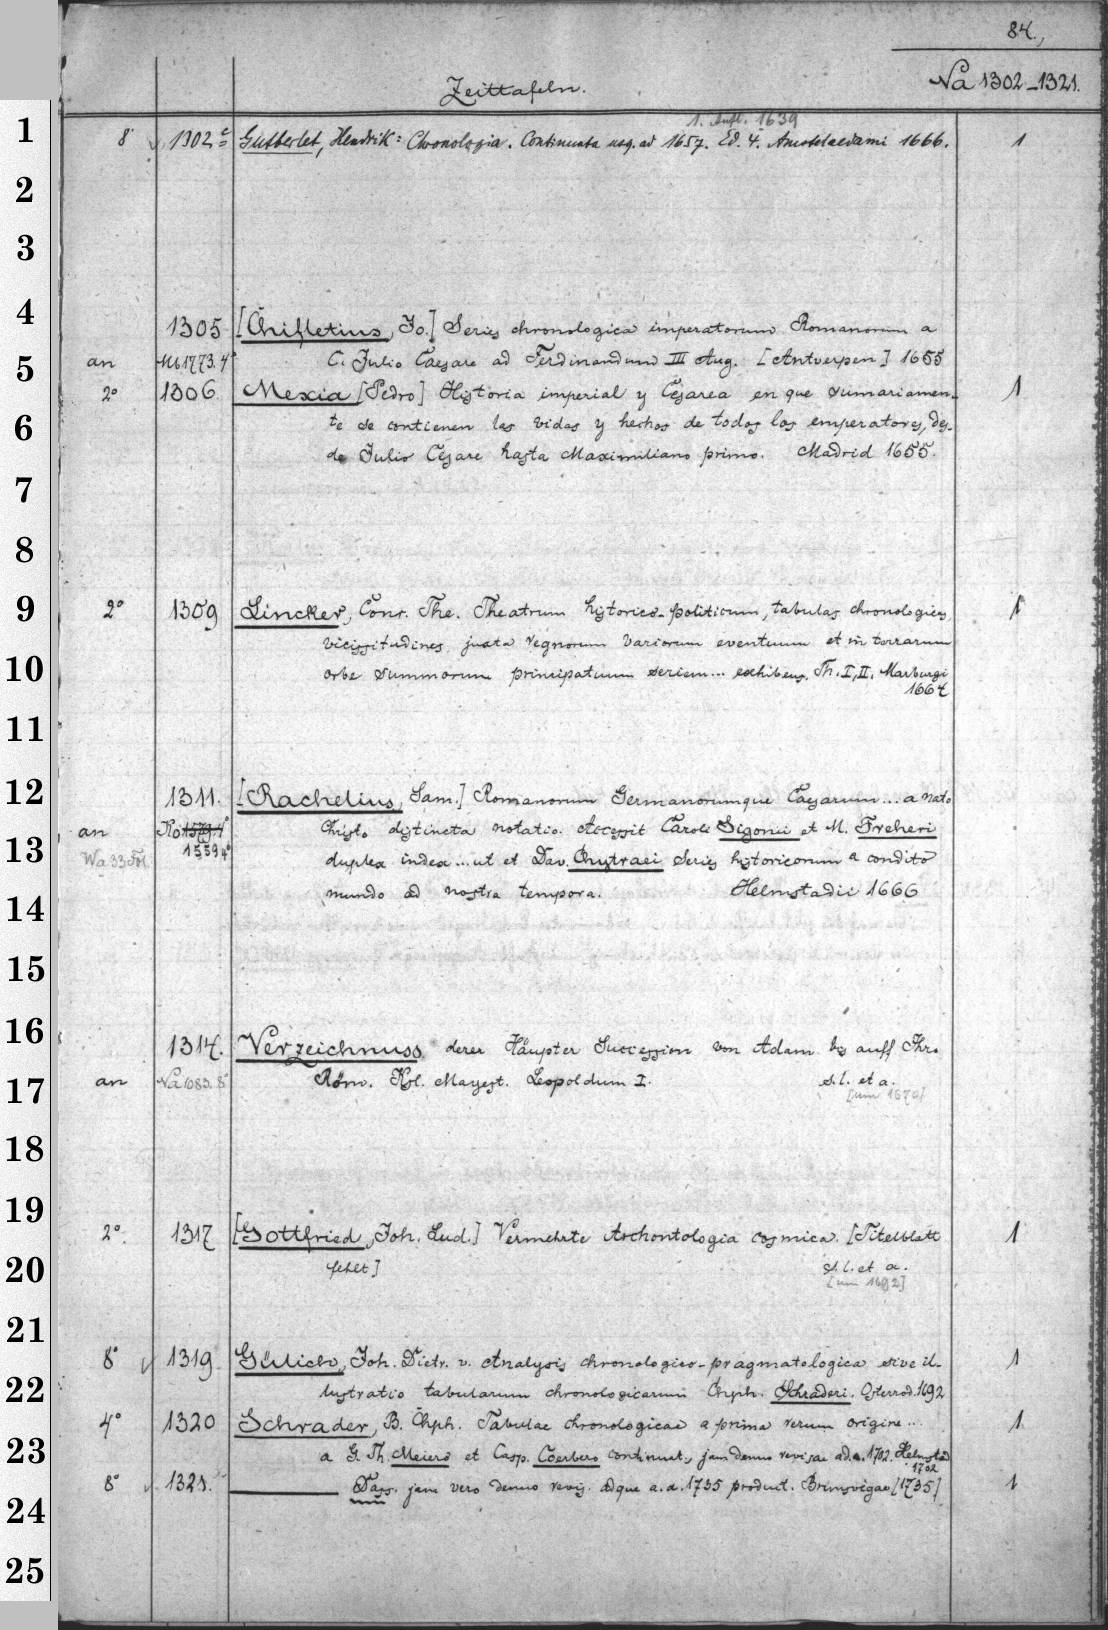 84.
Zeittafeln.
Na 1302-1321.
1. Aufl. 1639
1 8° 1302c Gutberlet, Hendrik: Chronologia. Continuata usq. ad 1657. Ed. 4. Amstelaedami 1666. 1
2
3
4 1305 [Chifletius, Jo.] Series chronologica imperatorum Romanorum a
5 an Mb1773.4° C. Julio Caesare ad Ferdinandum III Aug. [Antverpen] 1655
2° 1306 Mexia [Pedro] Historia imperial y Cesarea en que sumariamen-
1
6 te se contienen las vidas y hechos de todos los emperatores, des-
de Julio Cesare hasta Maximiliano primo. Madrid 1655.
7
8
9 2° 1309 Lincker, Conr. The. Theatrum historico-politicum, tabulas chronologicas,
1
vicissitudines juxta regnorum variorum eventuum et in terrarum
10 orbe summorum principatuum seriem... exhibens. Th. I, II. Marburgi
1664
11
12 1311. [Rachelius, Sam.] Romanorum Germanorumque Caesarum... a nato
13 an Ro 1579.4° Christo distincta notatio. Accessit Caroli Sigonii et M. Freheri
Wa 33 Fol. 1559 4° duplex index... ut et Dav. Chytraei Series historicorum a condito
14 mundo ad nostra tempora. Helmstadii 1666
15
16 1314. Verzeichnuss derer Häupter Succession von Adam bis auff Ihro
17 an Na 1083.8° Röm. Ksl. Mayest. Leopoldum I. s.l. et a.
[um 1670]
18
19 2°. 1317 [Gottfried, Joh. Lud.] Vermehrte Archontologia cosmica. [Titelblatt
1
20 fehlt] s.l. et a.
21
8° 1319 Gülich, Joh. Dietr. v. Analysis chronologico-pragmatologica sive il-
1
22 lustratio tabularum chronologicarum Chph. Schraderi. Osterrod. 1692
4° 1320 Schrader, B. Chph. Tabulae chronologicae a prima rerum origine...
1
23 a G. Th. Meiero et Casp. Coerbero continuat., jam denuo revisae ad a. 1702. Helmstad
1702
8° 1321. Dass. jam vero denuo revis. adque a.a. 1735 product. Brunsvigae [1735] 1
24
25